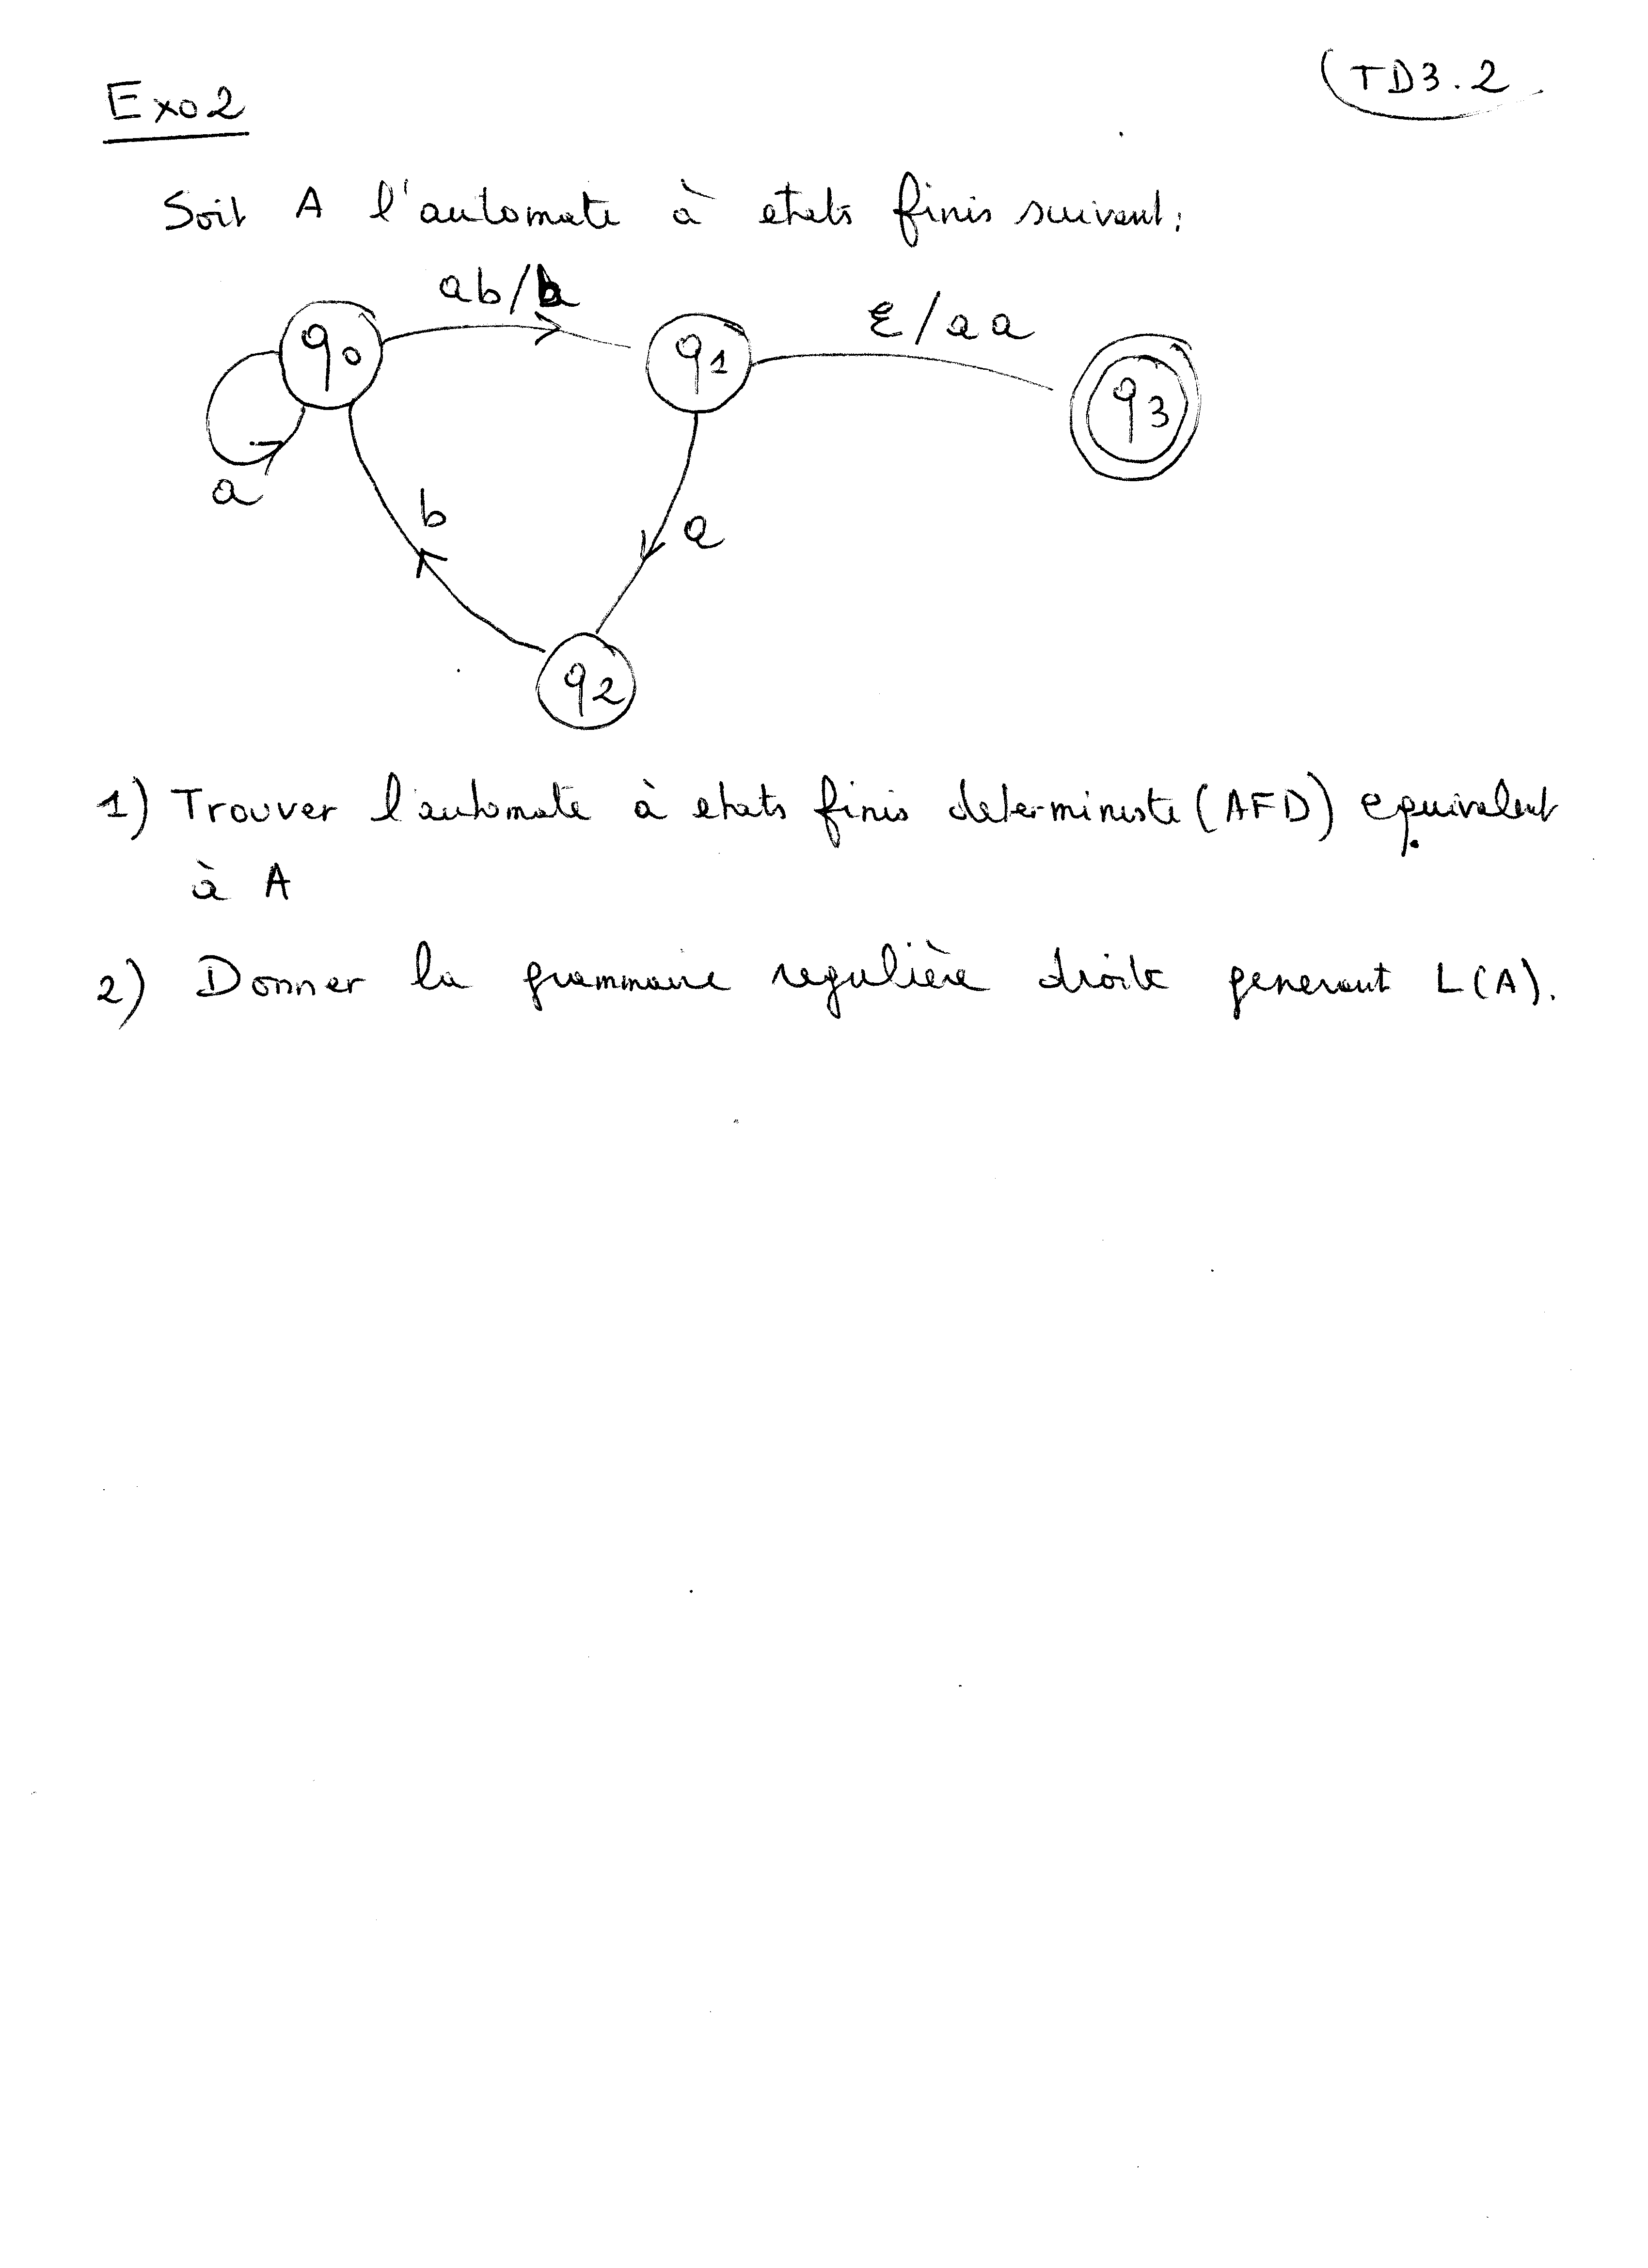 TD3.2
Exo2
Soit A l'automate à etats finis suivant:
ab/b
ε/aa
q0
q1
q3
a
b
a
q2
1) Trouver l'automate à etats finis deterministe (AFD) equivalent
à A
2) Donner la grammaire regulière droite generant L(A).